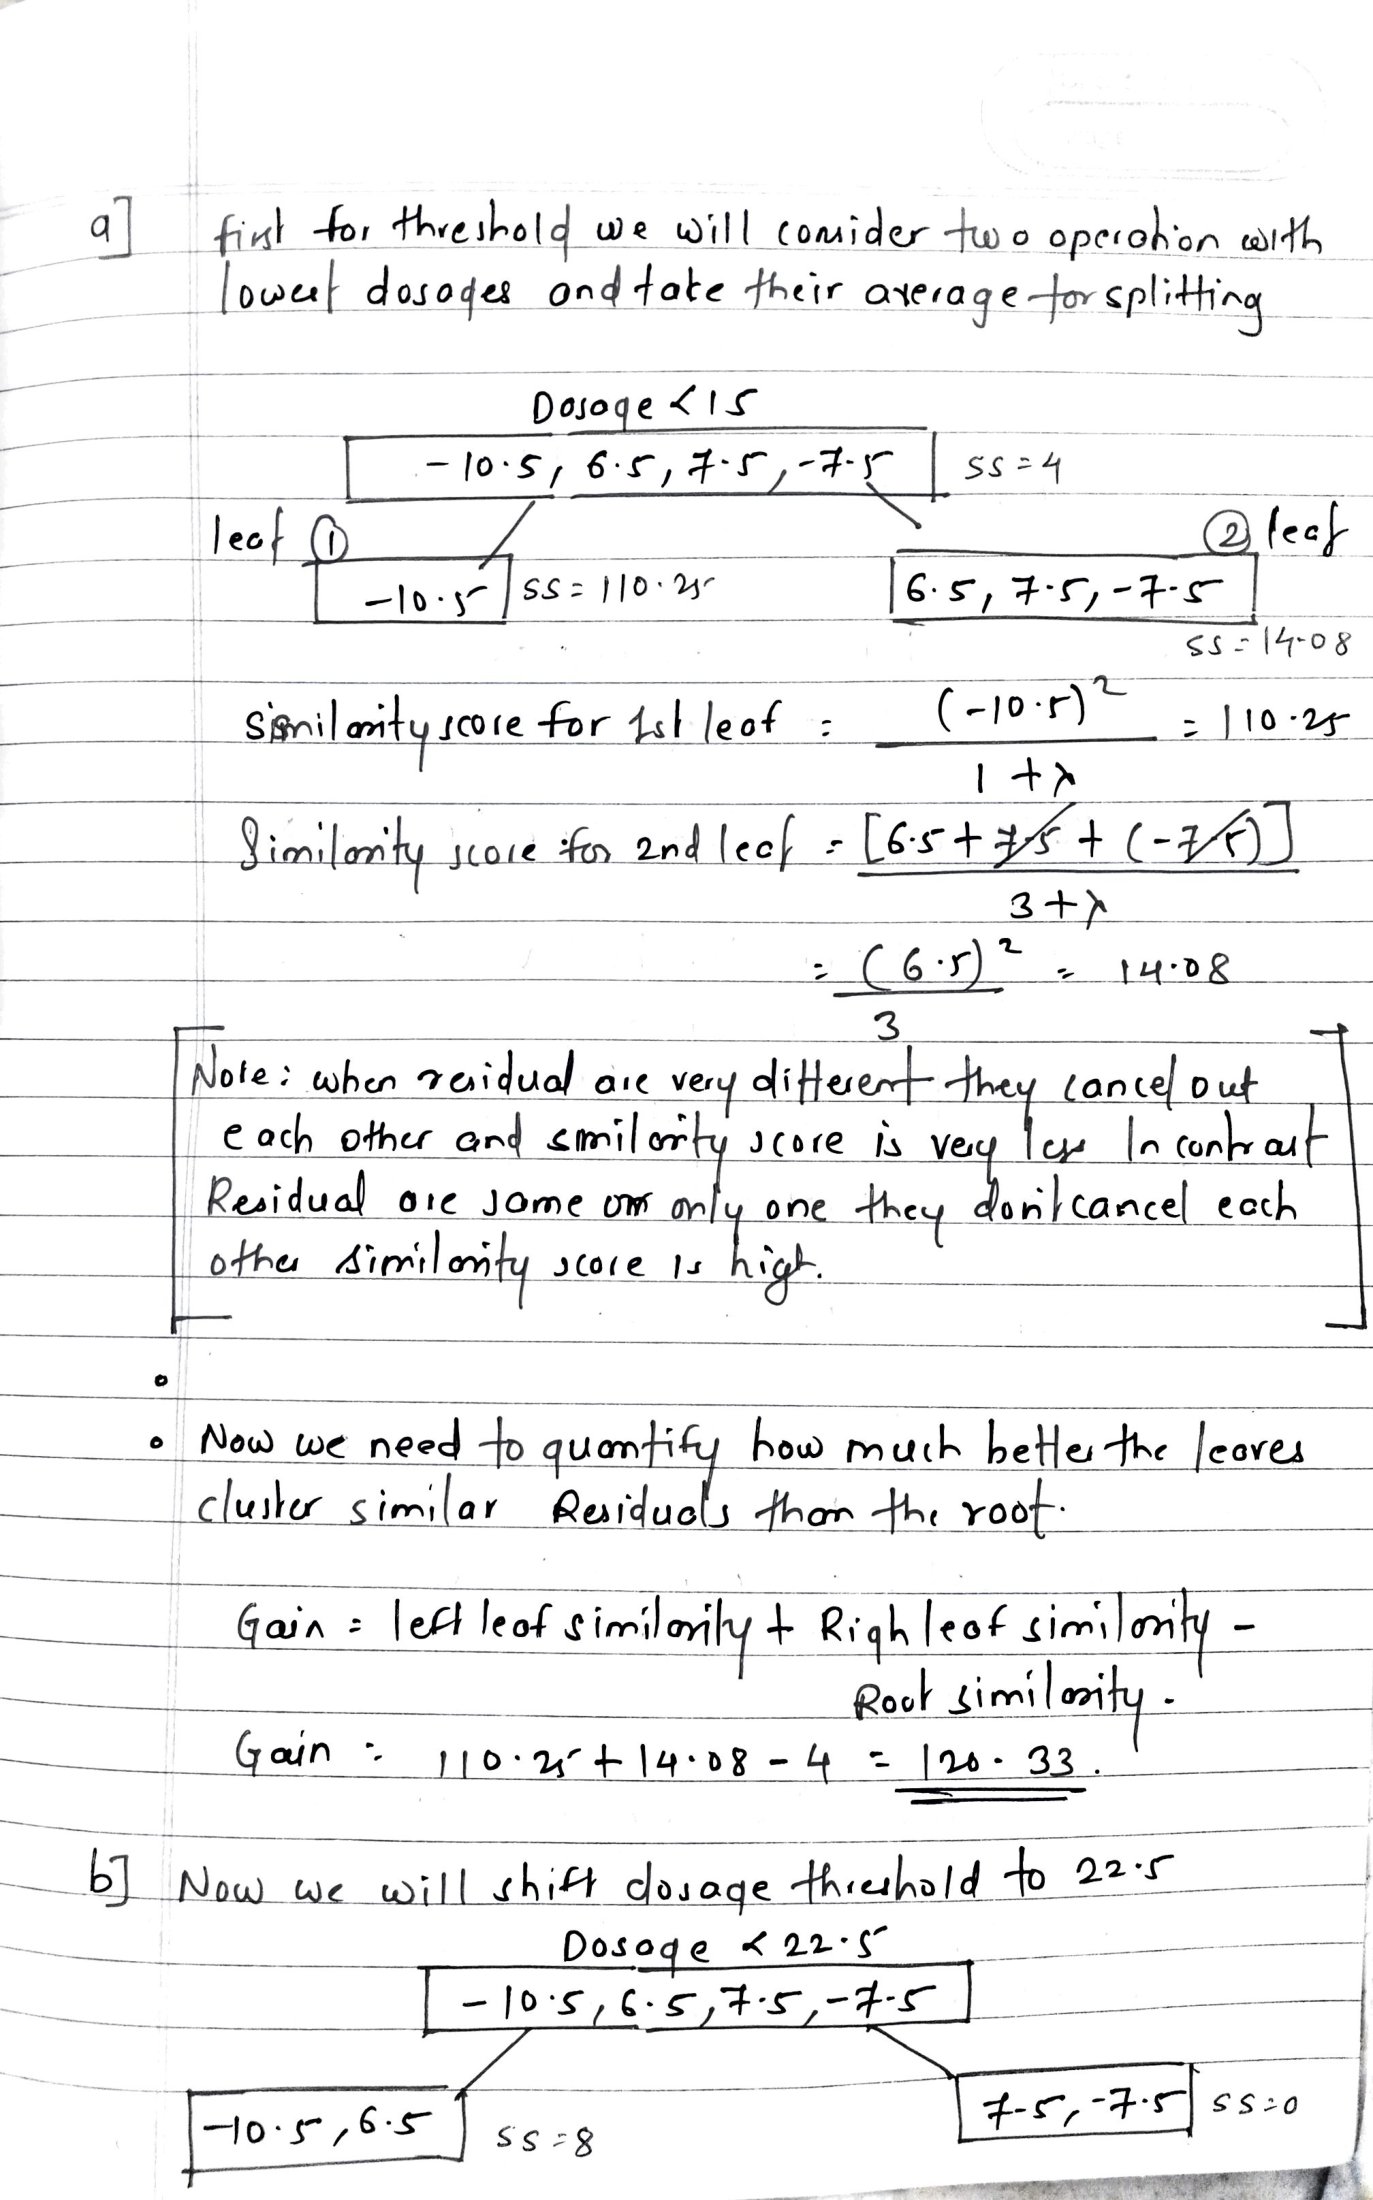 a] first for threshold we will consider two operation with
lowest dosages and take their average for splitting
Dosage < 15
-10.5, 6.5, 7.5, -7.5 SS = 4
leaf ① ② leaf
-10.5 SS = 110.25 6.5, 7.5, -7.5
SS = 14.08
Similarity score for 1st leaf = (-10.5)² / 1 + λ = 110.25
Similarity score for 2nd leaf = [6.5 + 7.5 + (-7.5)] / 3 + λ
= (6.5)² / 3 = 14.08
Note: when residual are very different they cancel out
each other and smilarity score is very less In contrast
Residual are same or only one they don't cancel each
other similarity score is high.
• Now we need to quantify how much better the leaves
cluster similar Residuals than the root.
Gain = left leaf similarity + Righ leaf similarity -
Root similarity.
Gain = 110.25 + 14.08 - 4 = 120.33.
b] Now we will shift dosage threshold to 22.5
Dosage < 22.5
-10.5, 6.5, 7.5, -7.5
-10.5, 6.5 SS = 8 7.5, -7.5 SS = 0